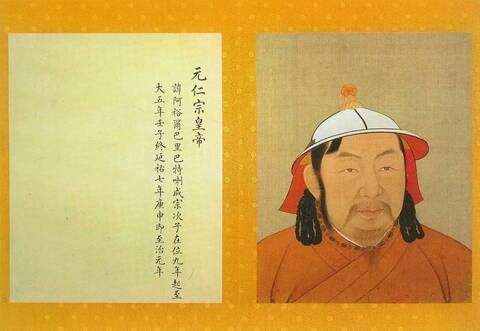 元仁宗皇帝
諱阿裕爾巴里巴特喇成宗次子在位九年起至
大五年壬子終延祐七年庚申即至治元年